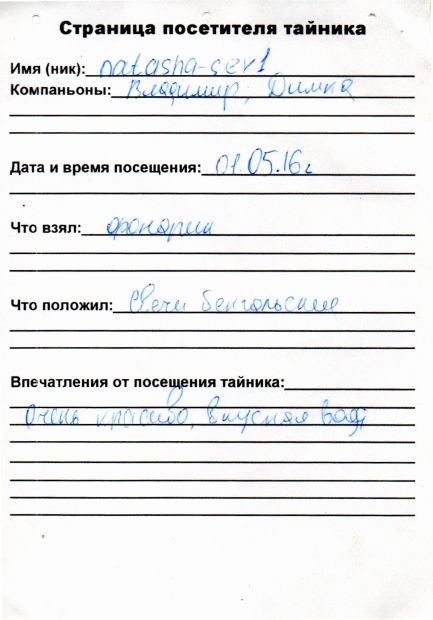 Страница посетителя тайника
Имя (ник): natasha-sev1
Компаньоны: Владимир, Димка
Дата и время посещения: 01.05.16г
Что взял: фонарик
Что положил: Свечи бенгальские
Впечатления от посещения тайника:
Очень красиво, вкусная вода